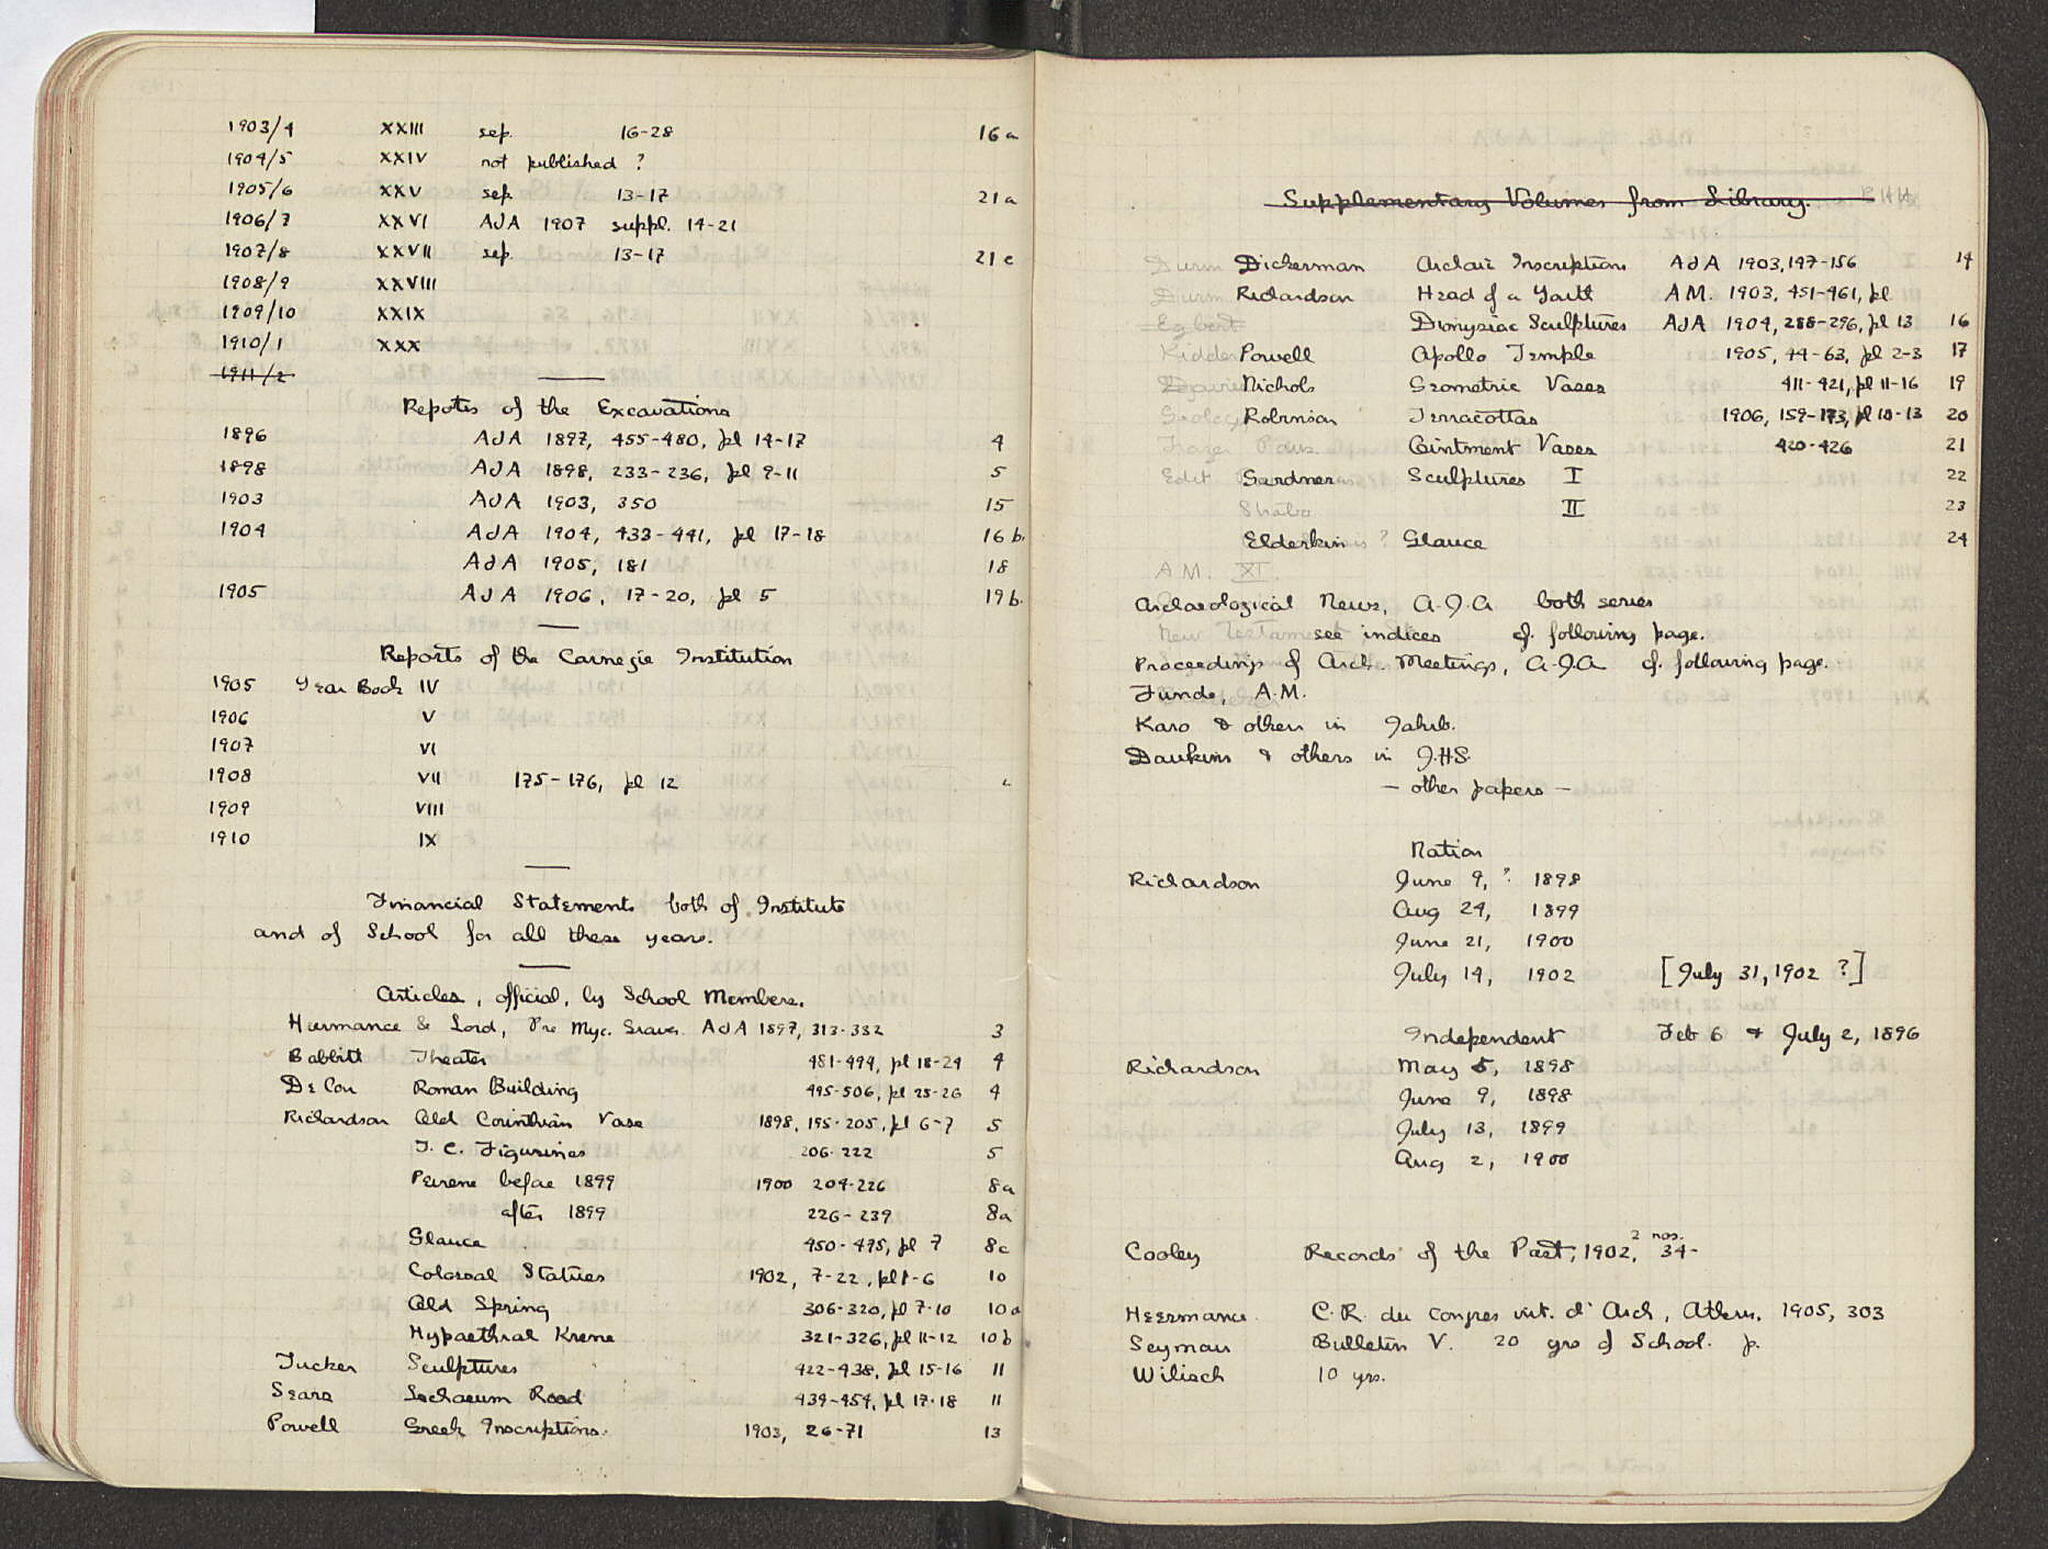 1903/4 XXIII sep. 16-28 16a
1904/5 XXIV not published ?
1905/6 XXV sep. 13-17 21a
1906/7 XXVI AJA 1907 suppl. 14-21
1907/8 XXVII sep. 13-17 21c
1908/9 XXVIII
1909/10 XXIX
1910/1 XXX
1911/2
Reports of the Excavations
1896 AJA 1897, 455-480, pl 14-17 4
1898 AJA 1898, 233-236, pl 9-11 5
1903 AJA 1903, 350 15
1904 AJA 1904, 433-441, pl 17-18 16b.
AJA 1905, 181 18
1905 AJA 1906, 17-20, pl 5 19b.
Reports of the Carnegie Institution
1905 Year Book IV
1906 V
1907 VI
1908 VII 175-176, pl 12
1909 VIII
1910 IX
Financial Statements both of Institute
and of School for all these years.
Articles, official, by School Members.
Heermance & Lord, Pre Myc. Graves. AJA 1897, 313-332 3
Babbitt Theater 481-494, pl 18-24 4
De Cou Roman Building 495-506, pl 25-26 4
Richardson Old Corinthian Vase 1898, 195-205, pl 6-7 5
T. C. Figurines 206-222 5
Peirene before 1899 1900 204-226 8a
after 1899 226-239 8a
Glauce 450-475, pl 7 8c
Colossal Statues 1902, 7-22, pl 1-6 10
Old Spring 306-320, pl 7-10 10a
Hypaethral Krene 321-326, pl 11-12 10b
Tucker Sculptures 422-438, pl 15-16 11
Sears Lechaeum Road 439-454, pl 17-18 11
Powell Greek Inscriptions. 1903, 26-71 13
Supplementary Volumes from Library.
Durm Dickerman Archaic Inscriptions AJA 1903, 147-156 14
Durm Richardson Head of a Youth A.M. 1903, 451-461, pl
Egbert Dionysiac Sculptures AJA 1904, 288-296, pl 13 16
Kidder Powell Apollo Temple 1905, 44-63, pl 2-3 17
Nichols Geometric Vases 411-421, pl 11-16 19
Robinson Terracottas 1906, 159-173, pl 10-13 20
Frazer Paus. Ointment Vases 420-426 21
Edit Gardner Sculptures I 22
Strabo II 23
Elderkin ? Glauce 24
A.M. XI.
Archaeological News, A.J.A both series
New Testament see indices cf. following page.
Proceedings of Arch. Meetings, A.J.A cf. following page.
Funde, A.M.
Karo & others in Jahrb.
Dawkins & others in J.H.S.
— other papers —
Nation
Richardson June 9, ? 1898
Aug 24, 1899
June 21, 1900
July 14, 1902 [July 31, 1902 ?]
Independent Feb 6 & July 2, 1896
Richardson May 5, 1898
June 9, 1898
July 13, 1899
Aug 2, 1900
2 nos.
Cooley Records of the Past, 1902, 34-
Heermance. C.R. du Congres int. d'Arch, Athens, 1905, 303
Seymour Bulletin V. 20 yrs of School. p.
Wilisch 10 yrs.